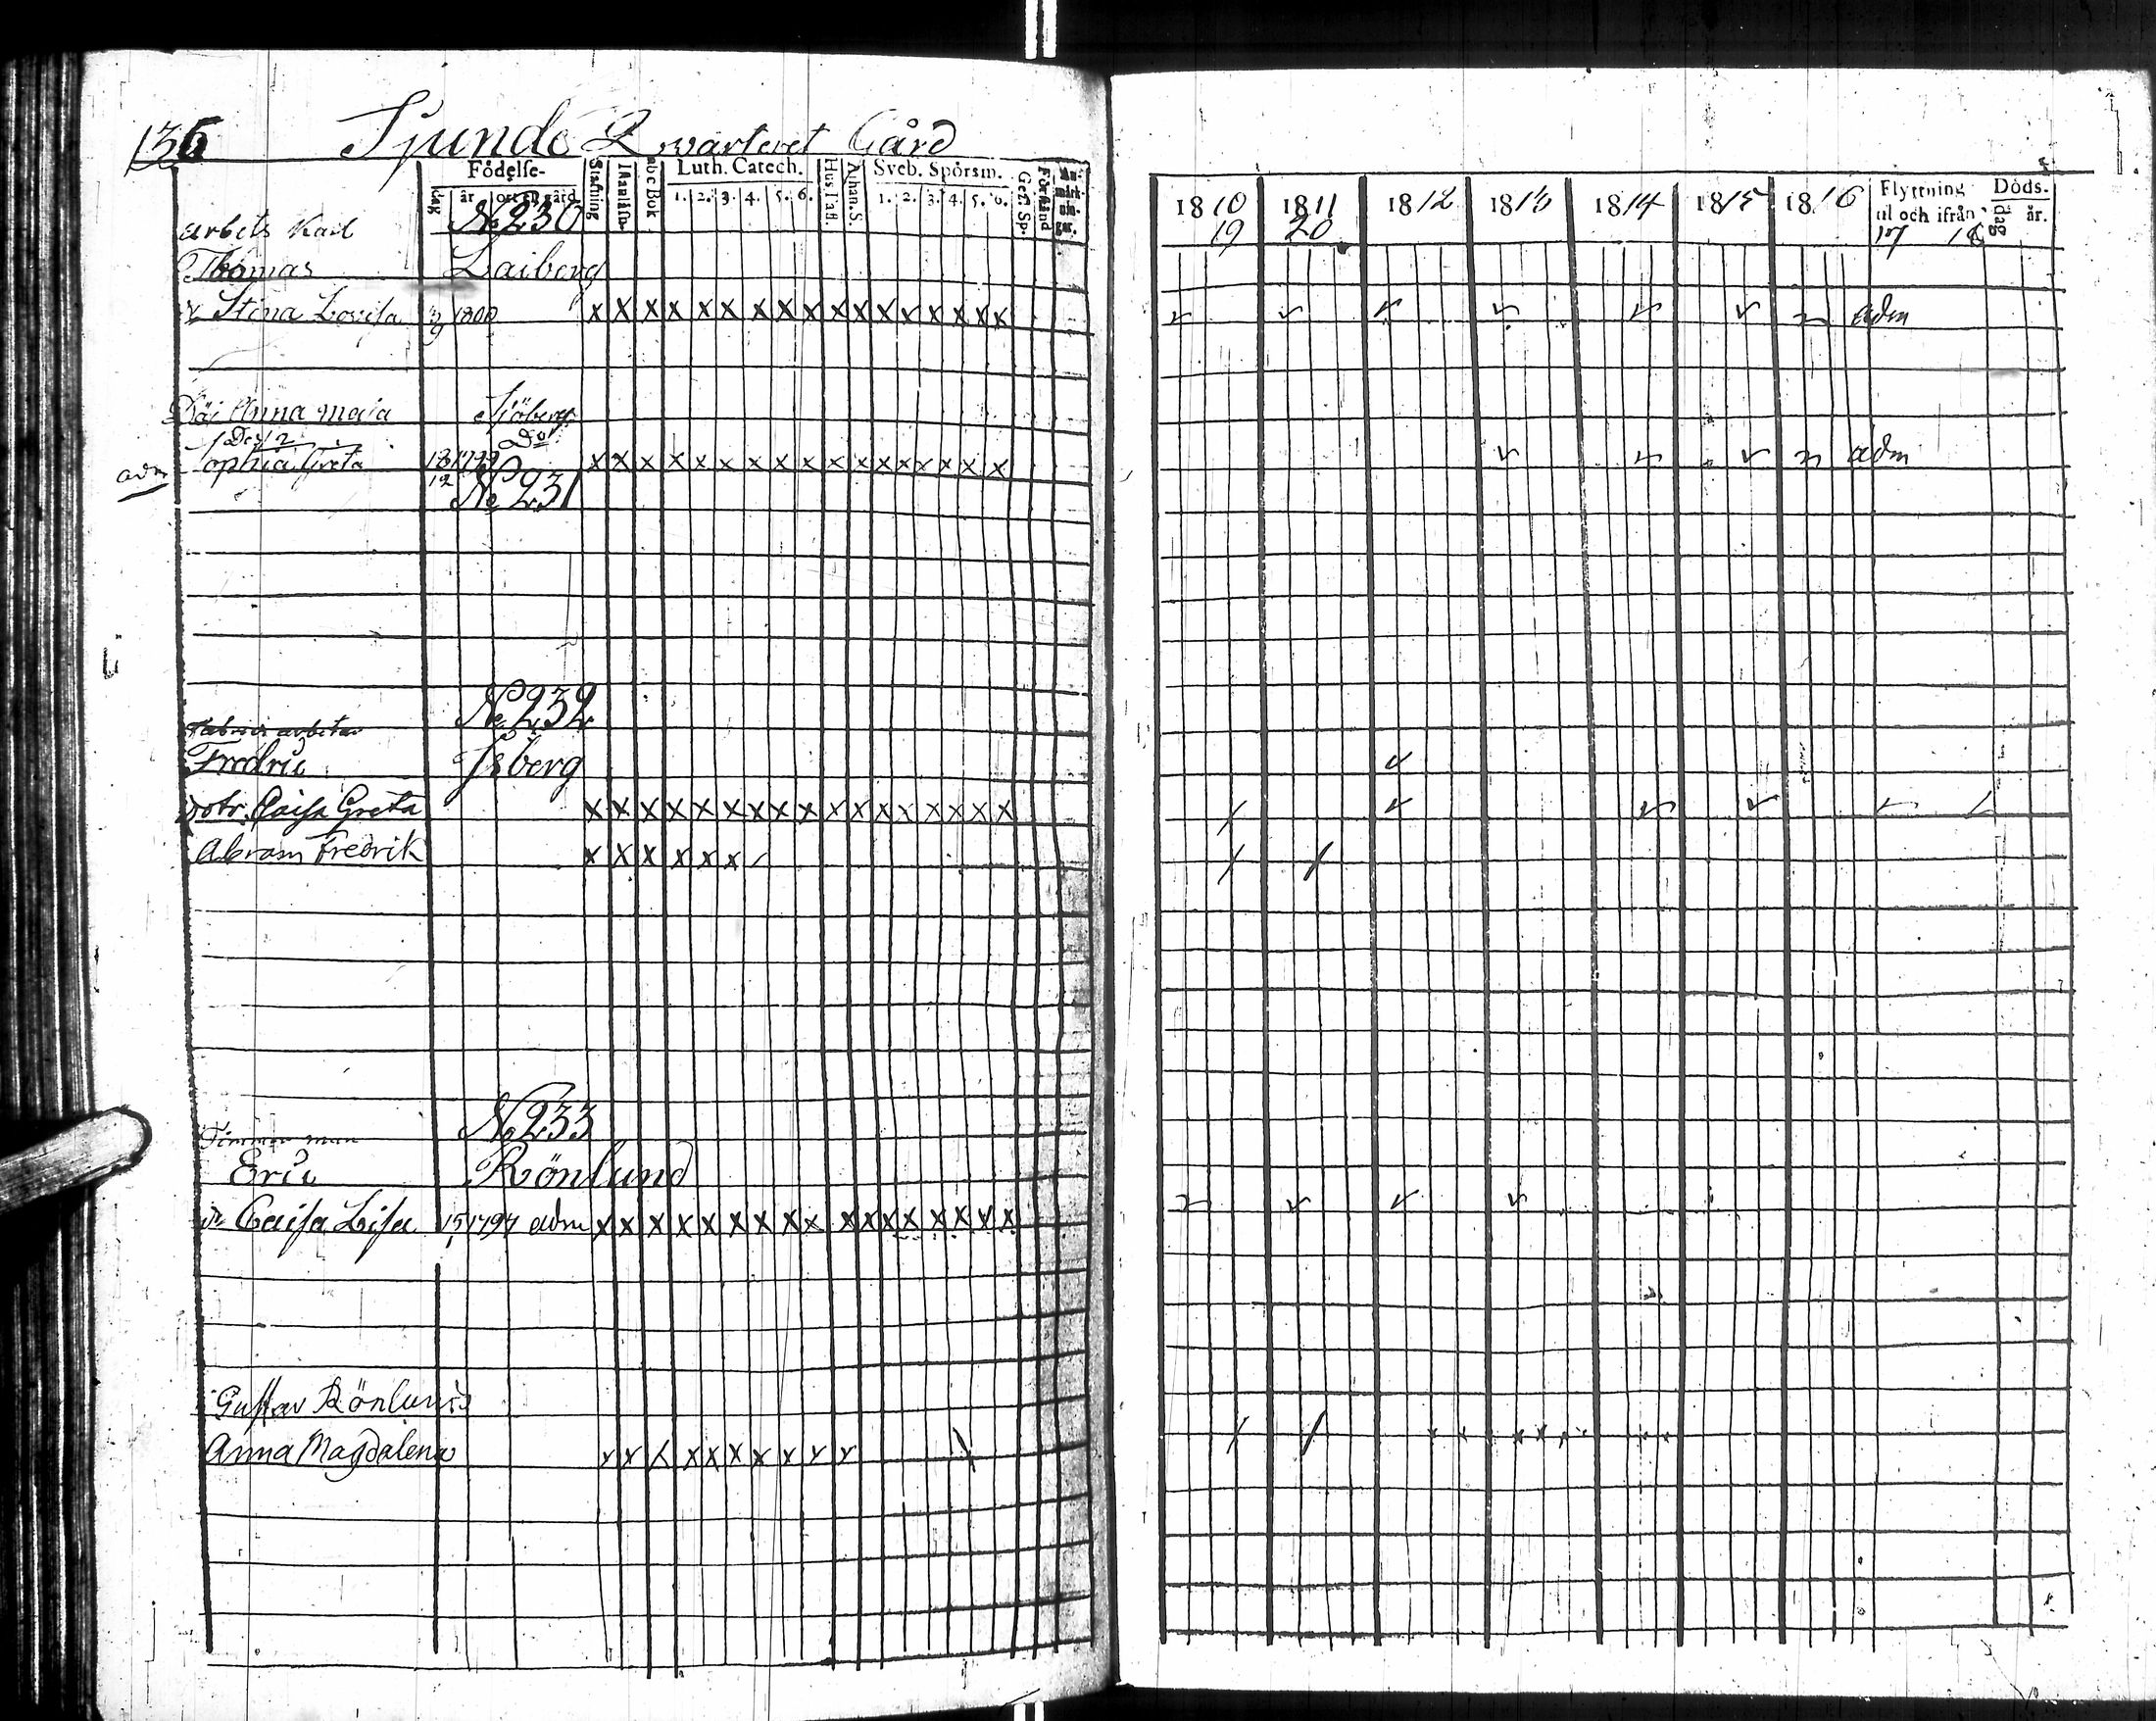 136 Sjunde Qvarteret Gård
Födelse-
dag år ort en gård
Stafning
Innanläsn.
abc Bok
Luth. Catech.
1. 2. 3. 4. 5. 6.
Hus Tafl.
Athan. S.
Sveb. Spörsm.
1. 2. 3. 4. 5. 6.
Gess Sp.
Förstånd
An-
märk-
nin-
gar.
1810 1811 1812 1813 1814 1815 1816 Flyttning Döds-
19 20 til och ifrån dag år.
17 18
arbets Karl No 230
Thomas Laiberg
Dr Stina Lovisa 3/9 1800 x x x x x x x x x x x x x x x x x adm
Anna Maja Sjöberg
Do
adm Sophia Greta 18/12 1799 x x x x x x x x x x x x x x x x x adm
No 231
No 232
Fabrics arbetar
Fredric Isberg
Dotr. Caisa Greta x x x x x x x x x x x x x x x x x
Abram Fredrik x x x x x x /
No 233
Timmer man
Eric Rönlund
Dr Caisa Lisa 15 1797 adm x x x x x x x x x x x x x x x x x
Gustav Rönlund
Anna Magdalena x x x x x x x x x x